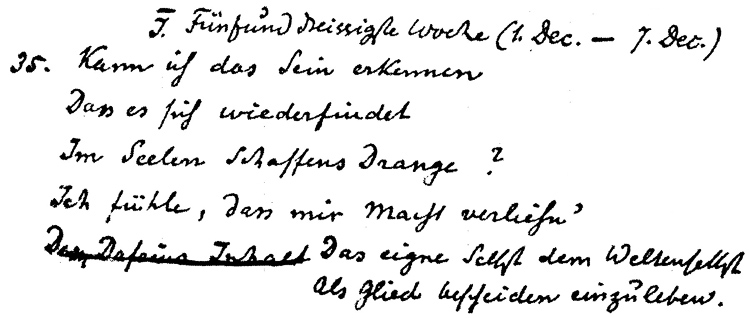 I. Fünfunddreissigste Woche (1. Dec. — 7. Dec.)
35. Kann ich das Sein erkennen
Dass es sich wiederfindet
Im Seelen Schaffens Drange ?
Ich fühle, dass mir Macht verliehn'
Des Daseins Inhalt Das eigne Selbst dem Weltenselbst
Als Glied bescheiden einzuleben.